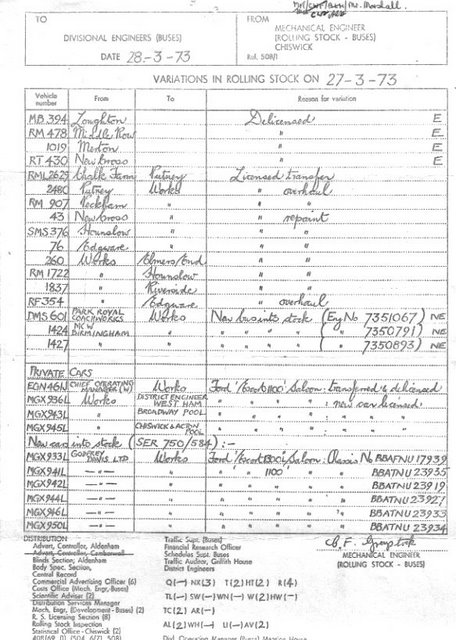 TO
DIVISIONAL ENGINEERS (BUSES)
DATE 28-3-73
Marshall
FROM
MECHANICAL ENGINEER
(ROLLING STOCK - BUSES)
CHISWICK
Ref. 508/1
VARIATIONS IN ROLLING STOCK ON 27-3-73
Vehicle number From To Reason for variation
MB 394 Loughton Delicensed E
RM 478 Middle Row " E
1019 Merton " E
RT 430 New Cross " E
RML 2629 Chalk Farm Putney Licensed transfer
2480 Putney Works " overhaul
RM 907 Peckham " " "
43 New Cross " " repaint
SMS 376 Hounslow " " "
76 Edgware " " "
260 Works Elmers End " "
RM 1722 " Hounslow " "
1837 " Riverside " "
RF 354 " Edgware " overhaul
DMS 601 PARK ROYAL COACHWORKS Works New bus into stock (Eng No 7351067) NE
1424 MCW BIRMINGHAM " " " " " 7350791) NE
1427 " " " " " " 7350893) NE
PRIVATE CARS
EGN 461J CHIEF OPERATING MANAGER (W) Works Ford 'Escort 1100' Saloon transferred & delicensed
MGX 936L Works DISTRICT ENGINEER WEST HAM " " " " new car licensed
MGX 943L " BROADWAY POOL " " " " "
MGX 945L " CHISWICK & ACTON POOL " " " " "
New cars into stock (SER 750/584) :-
MGX 933L GODFREY DAVIS LTD Works Ford 'Escort 1300' Saloon Chassis No BBAFNU 17939
MGX 941L -"- " " " 1100' " " BBATNU 23935
MGX 942L -"- " " " " " " BBATNU 23919
MGX 944L -"- " " " " " " BBATNU 23927
MGX 946L -"- " " " " " " BBATNU 23933
MGX 950L -"- " " " " " " BBATNU 23934
DISTRIBUTION
Advert, Controller, Aldenham
Advert, Controller, Camberwell
Blinds Section, Aldenham
Body Spec. Section,
Central Record
Commercial Advertising Officer (6)
Costs Office (Mech. Engr-Buses)
Scientific Adviser (2)
Distribution Services Manager
Mech. Engr, (Development - Buses) (2)
R. S. Licensing Section (8)
Rolling Stock Inspection
Statistical Office - Chiswick (2)
Traffic Supt. (Buses)
Financial Research Officer
Schedules Supt. (Buses)
Traffic Auditor, Griffith House
District Engineers
Q(-) NX(3) T(2) HT(2) R(4)
TL(-) SW(-) WN(-) W(2) HW(-)
TC(2) AR(-)
AL(2) WH(-) U(-) AV(2)
MECHANICAL ENGINEER
(ROLLING STOCK - BUSES)